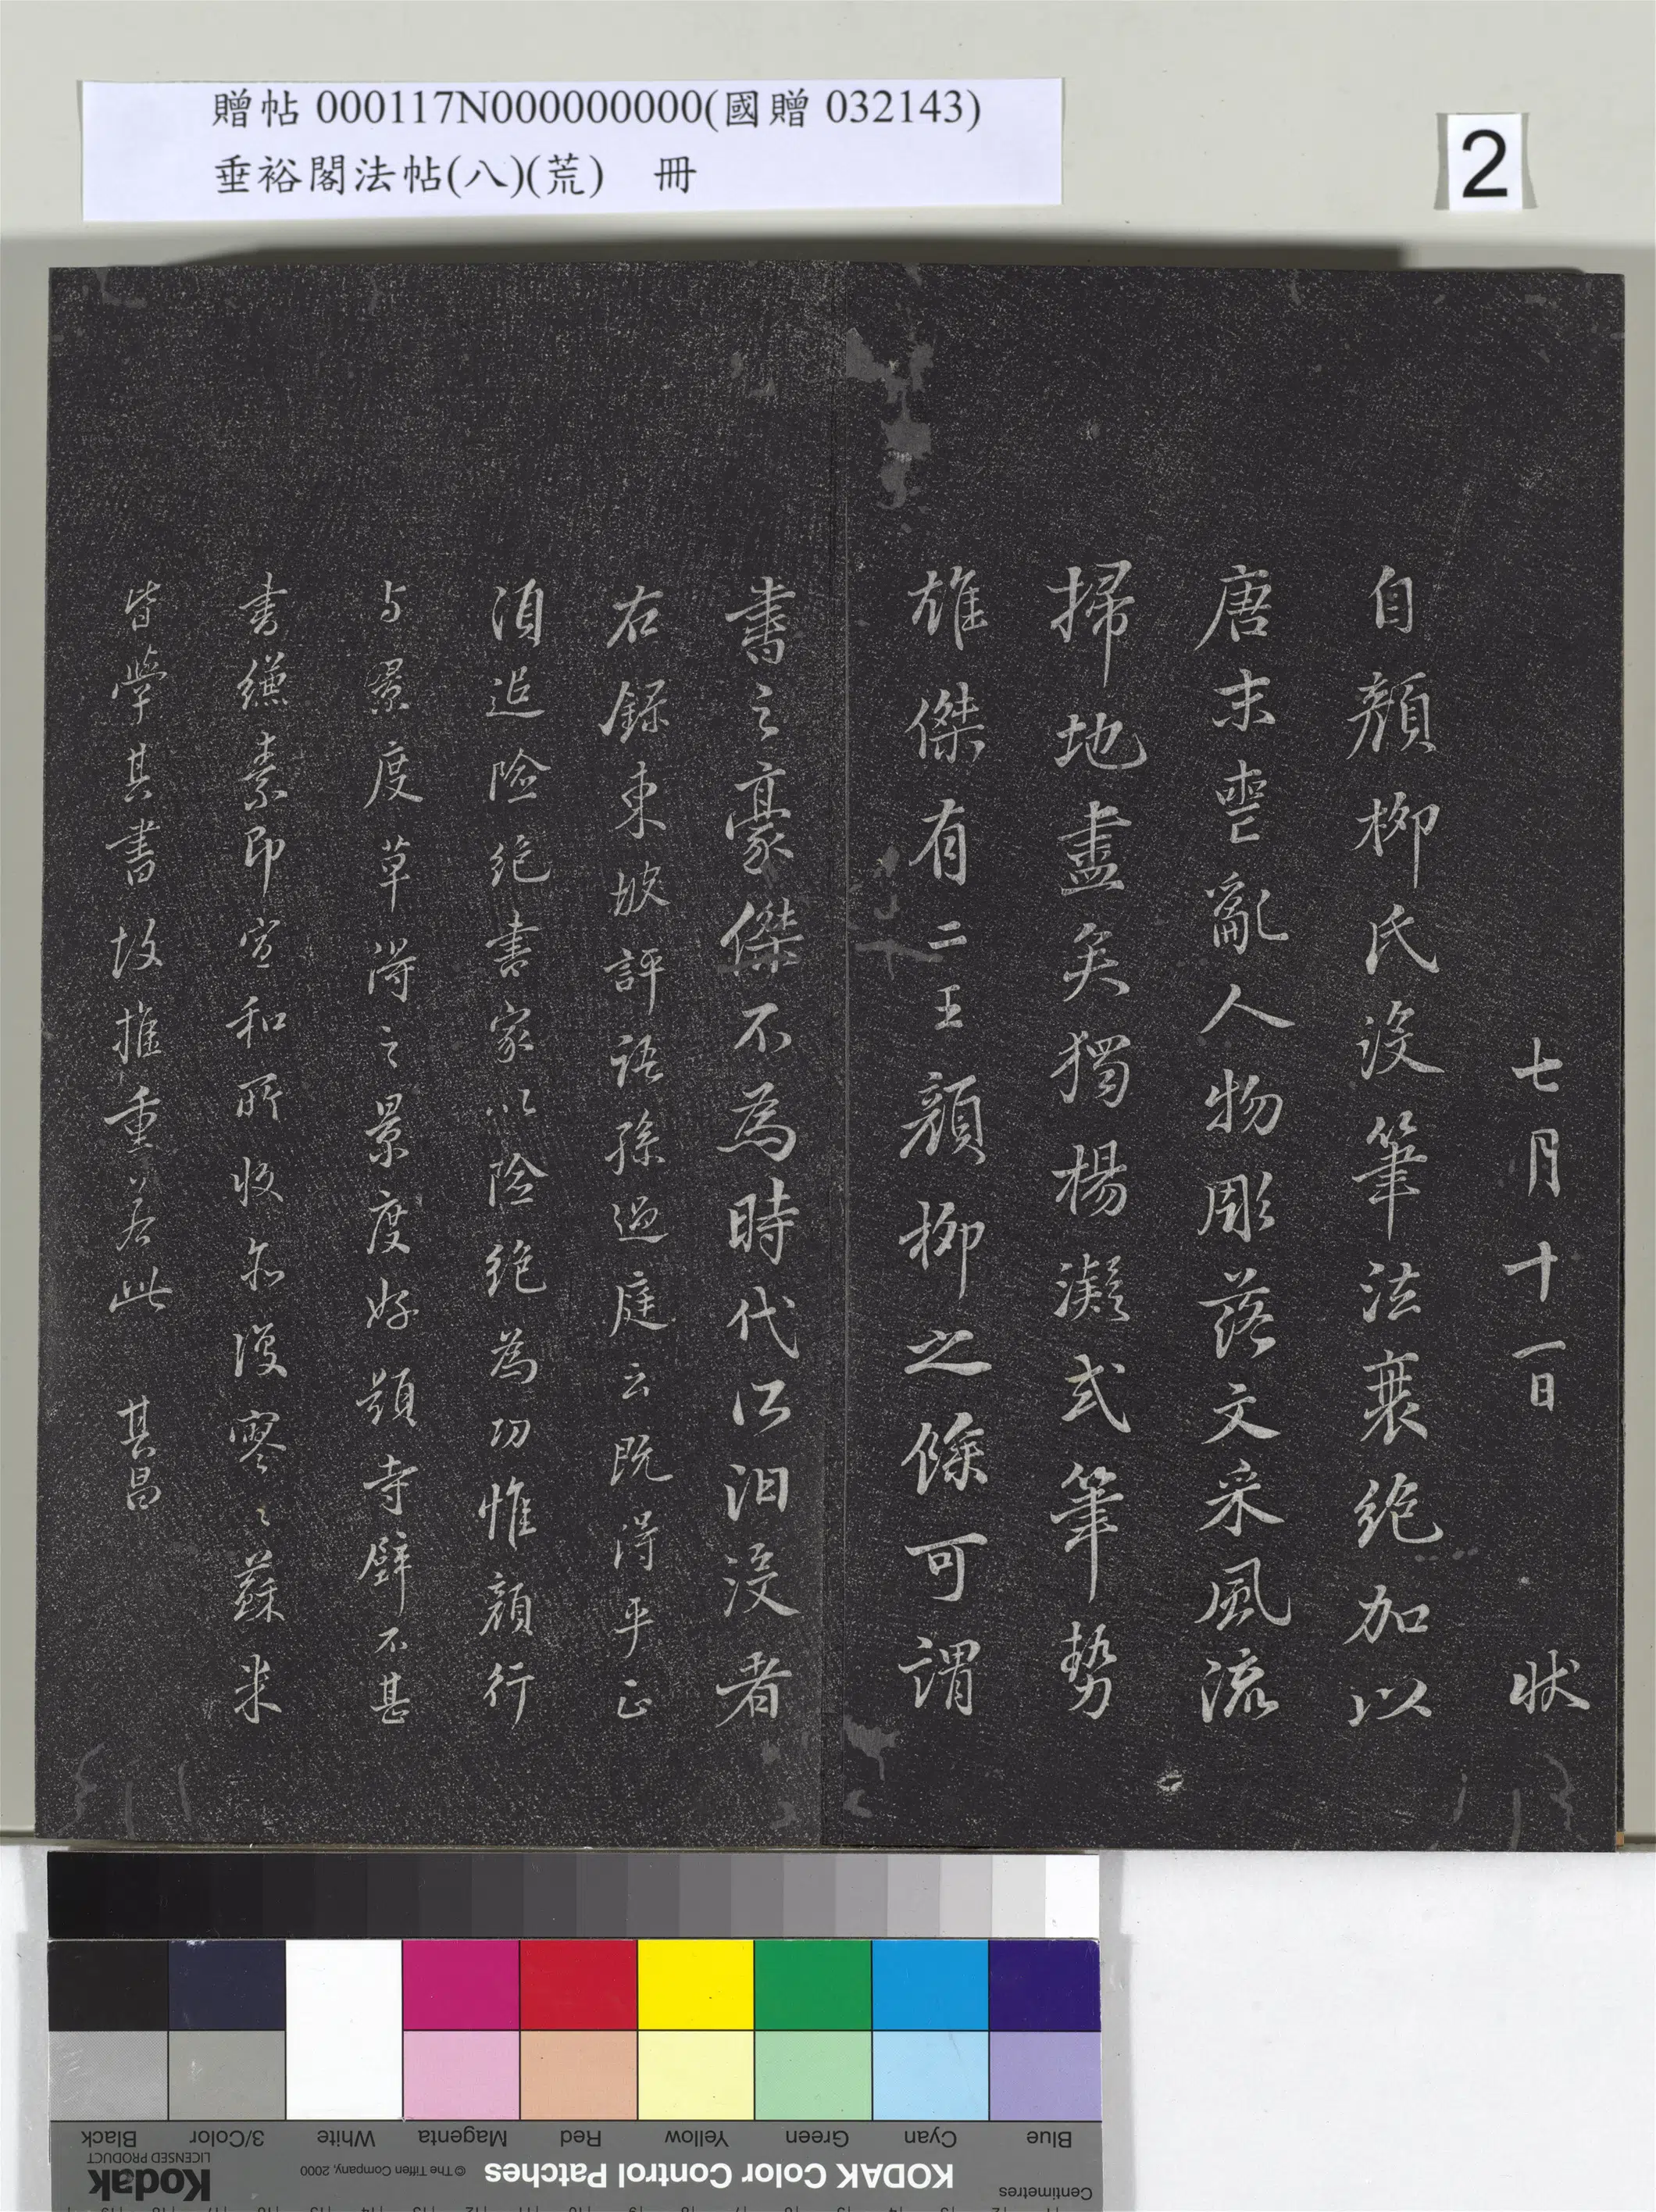 贈帖 000117N000000000(國贈 032143)
垂裕閣法帖(八)(荒) 冊
2
七月十一日 狀
自顏柳氏沒筆法衰絕加以
唐末喪亂人物彫落文采風流
掃地盡矣獨楊凝式筆勢
雄傑有二王顏柳之餘可謂
書之豪傑不為時代所汩沒者
右錄東坡評語孫過庭云既得平正
須追險絕書家以險絕為功惟顏行
与景度草得之景度好題寺壁不甚
書縑素即宣和所收亦復寥〻蘇米
皆學其書故推重若此 其昌
Blue
Cyan
Green
Yellow
Red
Magenta
White
3/Color
Black
Centimetres
KODAK Color Control Patches
© The Tiffen Company, 2000
Kodak
LICENSED PRODUCT